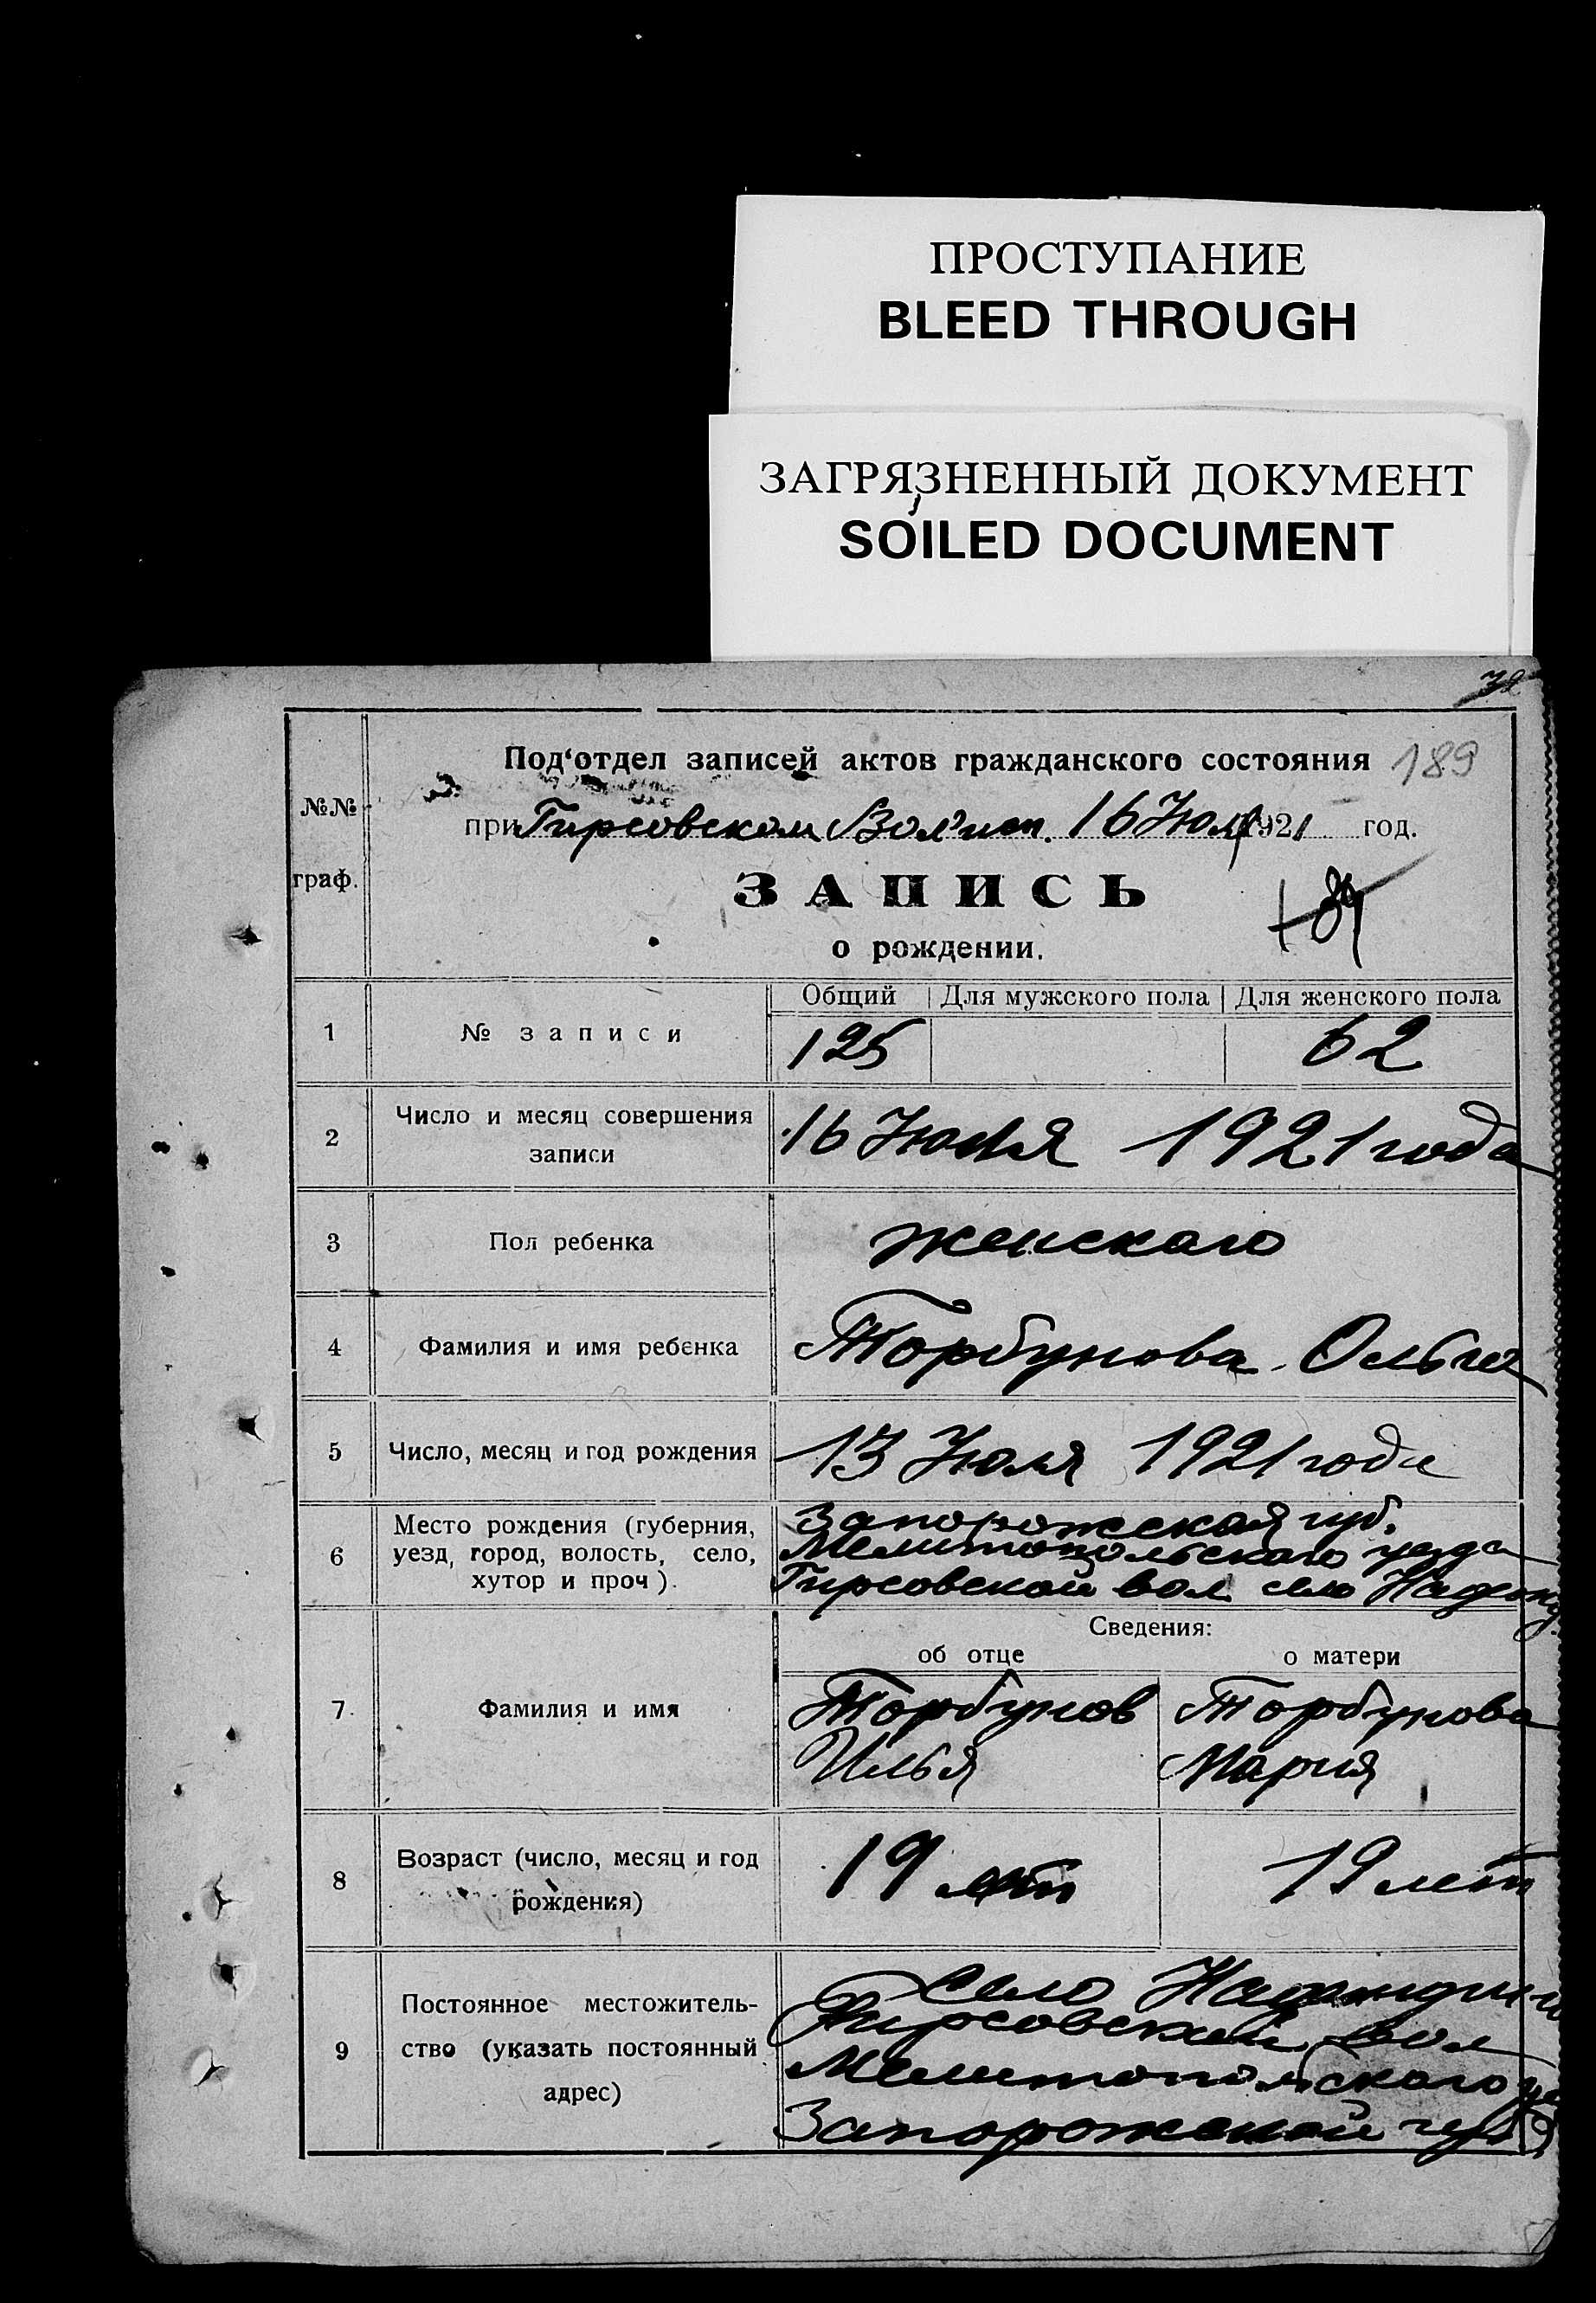 ПРОСТУПАНИЕ
BLEED THROUGH
ЗАГРЯЗНЕННЫЙ ДОКУМЕНТ
SOILED DOCUMENT
Под‘отдел записей актов гражданского состояния 189
№№ граф.
при Гирсовском Вол'исп. 16 Июля 1921 год.
ЗАПИСЬ
о рождении.
Общий Для мужского пола Для женского пола
1 № записи 125 62
2 Число и месяц совершения
записи
16 Июля 1921 года
3 Пол ребенка женскаго
4 Фамилия и имя ребенка Торбунова Ольга
5 Число, месяц и год рождения 13 Июля 1921 года
6 Место рождения (губерния,
уезд, город, волость, село,
хутор и проч).
Запорожская губ.
Мелитопольскаго уезда
Гирсовской вол село
Сведения:
об отце о матери
7. Фамилия и имя
Торбунов Торбунова
Илья Мария
8 Возраст (число, месяц и год
рождения)
19 лет 19 лет
9 Постоянное местожитель-
ство (указать постоянный
адрес)
Село
Гирсовской вол
Мелитопольскаго
Запорожской губ